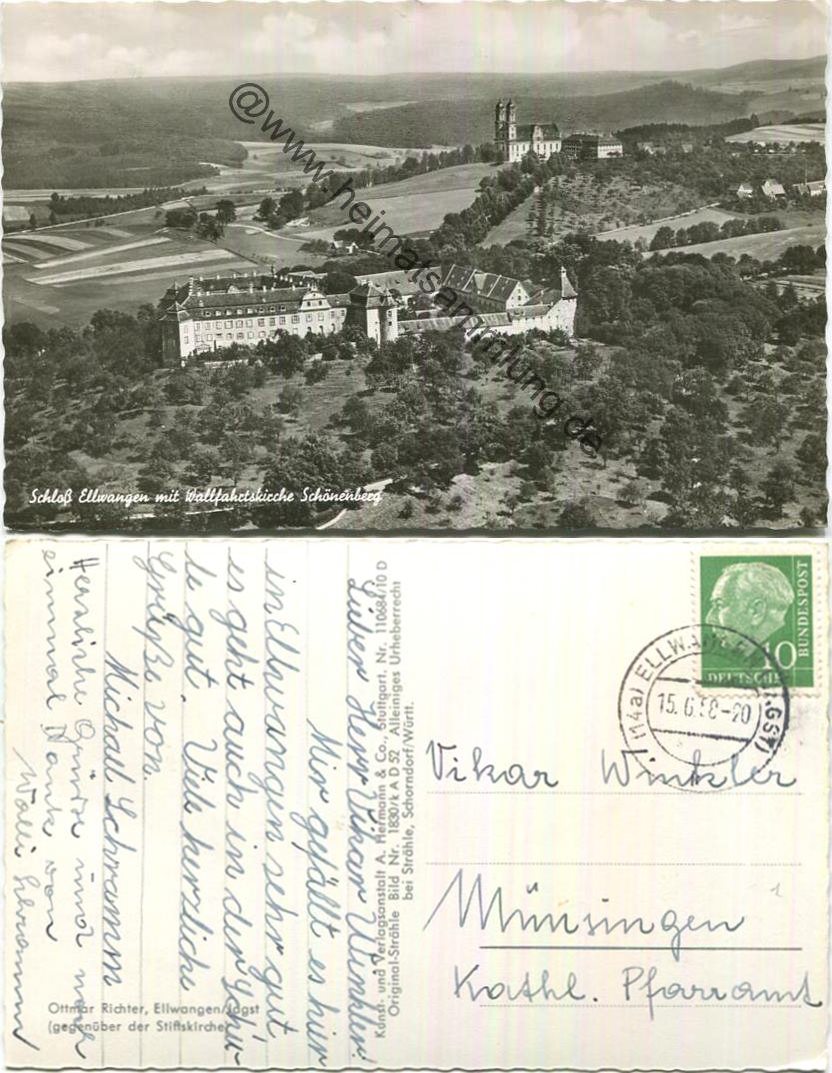 @www.heimatsammlung.de
Schloß Ellwangen mit Wallfahrtskirche Schönenberg
Lieber Herr Vikar Winkler!
Mir gefällt es hier
in Ellwangen sehr gut
es geht auch in der Schu-
le gut. Viele herzliche
Grüße von
Michael Schramm
Herzliche Grüße und noch
einmal Dank von
Walli Schramm
Ottmar Richter, Ellwangen/Jagst
(gegenüber der Stiftskirche)
Kunst- und Verlagsanstalt A. Hermann & Co., Stuttgart, Nr. 110684/10 D
Original-Strähle Bild Nr. 1830/k A D 52 Alleiniges Urheberrecht
bei Strähle, Schorndorf/Württ.
BUNDESPOST
10
DEUTSCHE
(14a) ELLWANGEN (JAGST)
15.6.58-20
Vikar Winkler
Münsingen
Kathl. Pfarramt